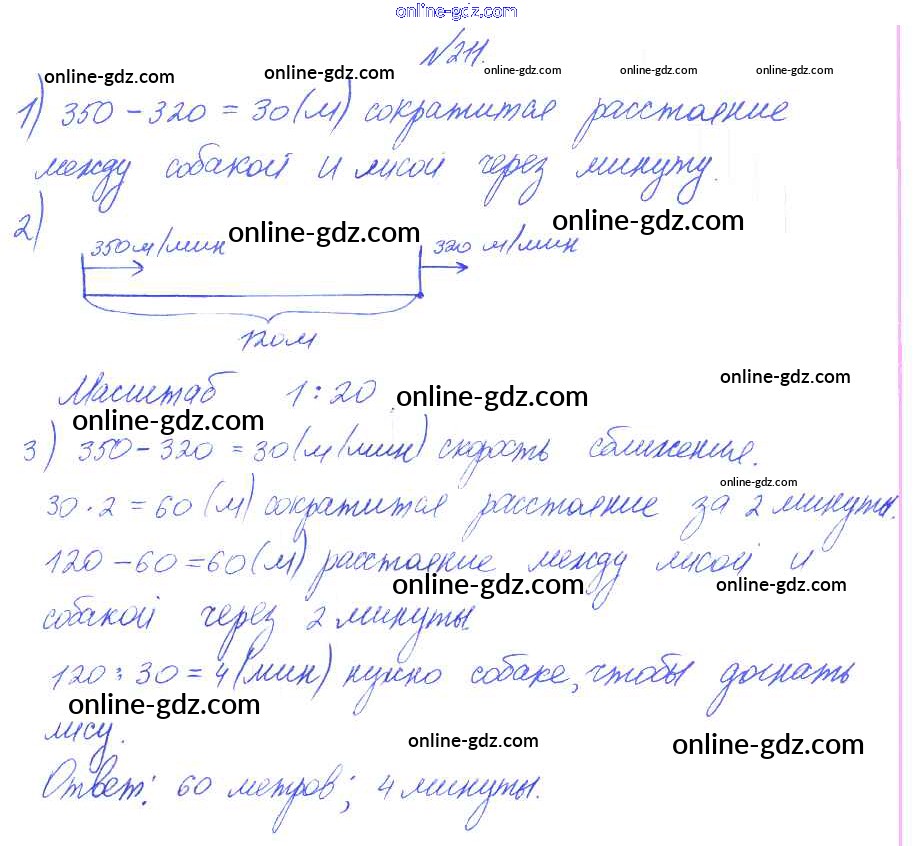 online-gdz.com
№211.
online-gdz.com online-gdz.com online-gdz.com online-gdz.com online-gdz.com
1) 350 - 320 = 30 (м) сократится расстояние
между собакой и лисой через минуту.
2)
online-gdz.com online-gdz.com
350 м/мин 320 м/мин
120 м
online-gdz.com
Масштаб 1 : 20
online-gdz.com
online-gdz.com
3) 350 - 320 = 30 (м/мин) скорость сближения.
online-gdz.com
30 · 2 = 60 (м) сократится расстояние за 2 минуты.
120 - 60 = 60 (м) расстояние между лисой и
online-gdz.com online-gdz.com
собакой через 2 минуты
120 : 30 = 4 (мин) нужно собаке, чтобы догнать
online-gdz.com
лису.
online-gdz.com online-gdz.com
Ответ: 60 метров; 4 минуты.